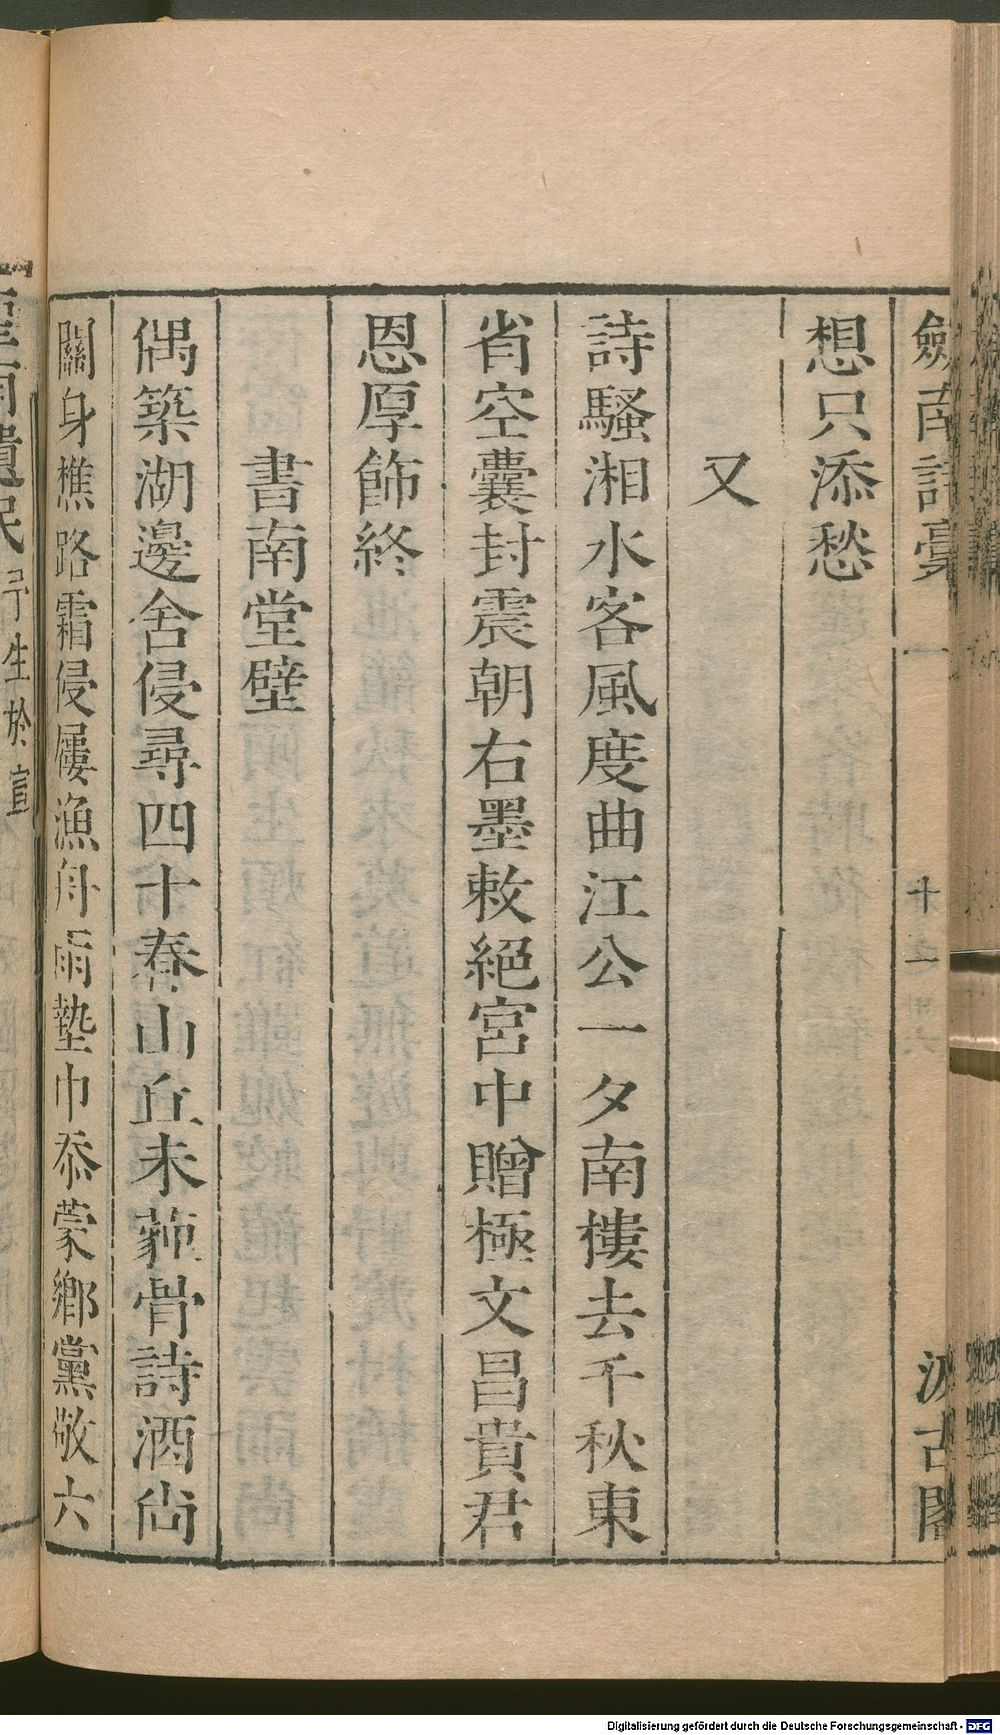 劔南詩稾
十一
汲古閣
想只添愁
又
詩騷湘水客風度曲江公一夕南樓去千秋東
省空囊封震朝右墨敕絕宮中贈極文昌貴君
恩厚飾終
書南堂壁
偶築湖邊舍侵尋四十春山丘未藏骨詩酒尙
關身樵路霜侵屨漁舟雨墊巾忝蒙鄉黨敬六
遺民予生於宣
Digitalisierung gefördert durch die Deutsche Forschungsgemeinschaft - DFG